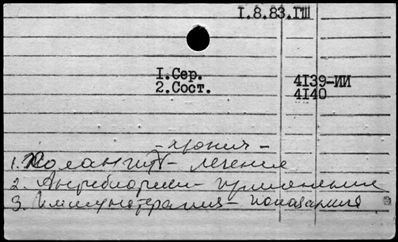 1.8.83.ГШ
1.Сер. 4139-ИИ
2.Сост. 4140
-хронич-
1. Холангит - лечение
2. Антибиотики - применение
3. Иммунотерапия - показания